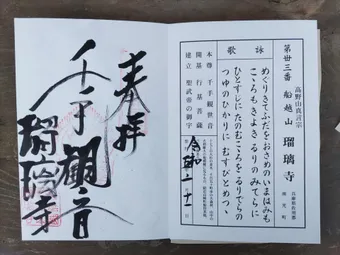 高野山真言宗
第丗三番 船越山 瑠璃寺
兵庫県佐用郡
詠歌
めぐりきてふだをおさめのいまはみも
こゝろもきよきるりのみてらに
ひとすじに たのむこゝろをるりでらの
つゆのひかりに むすびとめつゝ
本尊 千手観世音
開基 行基菩薩
建立 聖武帝の御宇
令和
奉拝
千手観音
瑠璃寺